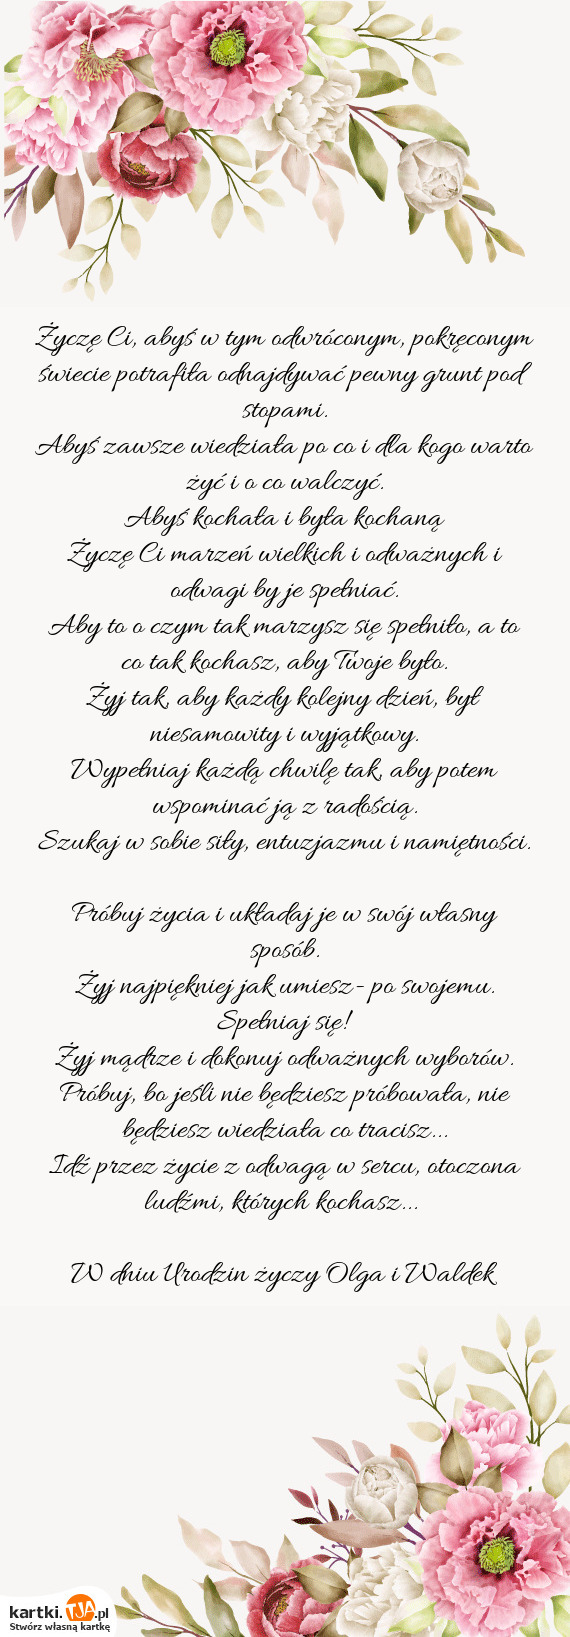 Życzę Ci, abyś w tym odwróconym, pokręconym
świecie potrafiła odnajdywać pewny grunt pod
stopami.
Abyś zawsze wiedziała po co i dla kogo warto
żyć i o co walczyć.
Abyś kochała i była kochaną
Życzę Ci marzeń wielkich i odważnych i
odwagi by je spełniać.
Aby to o czym tak marzysz się spełniło, a to
co tak kochasz, aby Twoje było.
Żyj tak, aby każdy kolejny dzień, był
niesamowity i wyjątkowy.
Wypełniaj każdą chwilę tak, aby potem
wspominać ją z radością.
Szukaj w sobie siły, entuzjazmu i namiętności.
Próbuj życia i układaj je w swój własny
sposób.
Żyj najpiękniej jak umiesz - po swojemu.
Spełniaj się!
Żyj mądrze i dokonuj odważnych wyborów.
Próbuj, bo jeśli nie będziesz próbowała, nie
będziesz wiedziała co tracisz...
Idź przez życie z odwagą w sercu, otoczona
ludźmi, których kochasz...
W dniu Urodzin życzy Olga i Waldek
kartki.TJA.pl
Stwórz własną kartkę